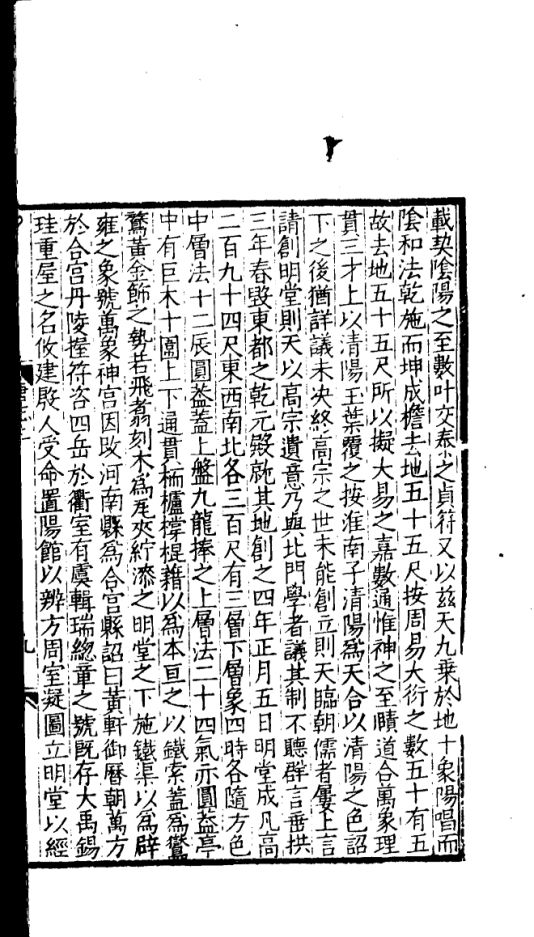 載契陰陽之至數叶交泰之貞符又以兹天九乗於地十象陽唱而
陰和法乾施而坤成檐去地五十五尺按周易大衍之數五十有五
故去地五十五尺所以擬大易之嘉數通惟神之至賾道合萬象理
貫三才上以清陽玉葉覆之按淮南子清陽爲天合以清陽之色詔
下之後猶詳議未决終高宗之世未能創立則天臨朝儒者屢上言
請創明堂則天以高宗遺意乃與北門學者議其制不聽羣言垂拱
三年春毀東都之乾元殿就其地創之四年正月五日明堂成凡高
二百九十四尺東西南北各三百尺有三層下層象四時各隨方色
中層法十二辰圓蓋蓋上盤九龍捧之上層法二十四氣亦圓蓋亭
中有巨木十圍上下通貫栭櫨橕㮰藉以爲本亘之以鐵索蓋爲鸑
鷟黃金飾之勢若飛翥刻木爲瓦夾紵漆之明堂之下施鐵渠以爲辟
雍之象號萬象神宫因改河南縣爲合宫縣詔曰黃軒御曆朝萬方
於合宫丹陵握符咨四岳於衢室有虞輯瑞總章之號既存大禹錫
珪重屋之名攸建殷人受命置陽館以辨方周室凝圖立明堂以經